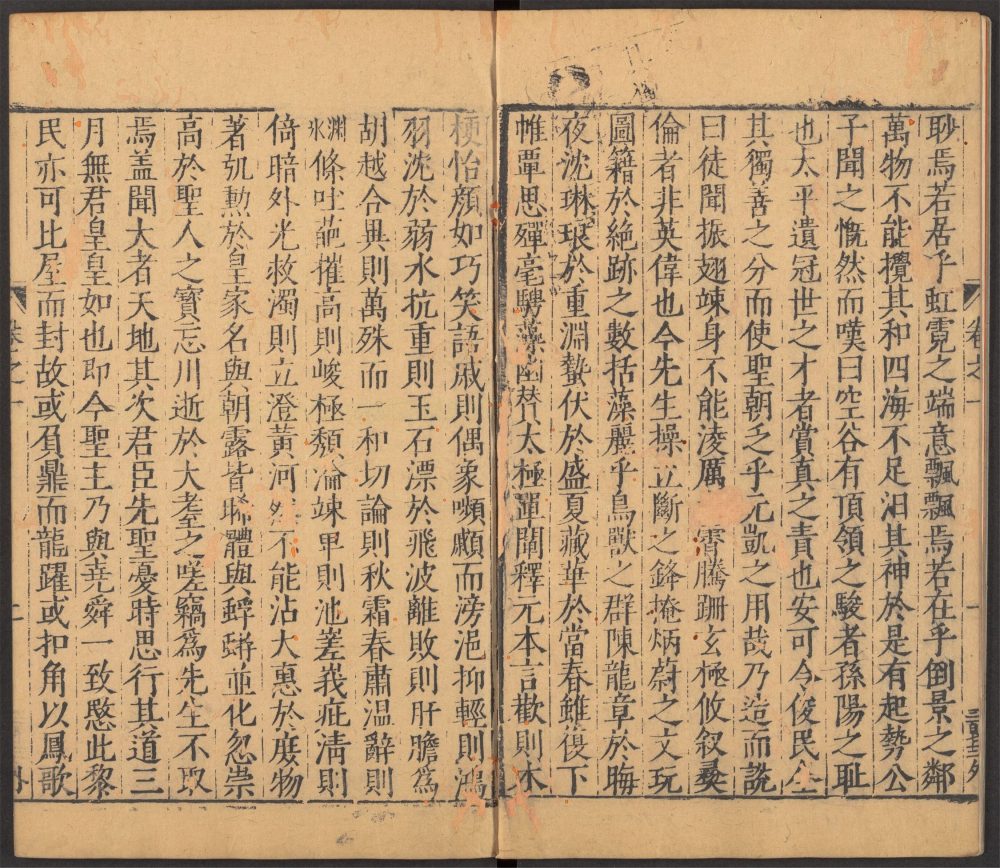 聊焉若居乎虹霓之端意飄飄焉若在乎倒景之鄰
萬物不能攪其和四海不足汩其神於是有赴勢公
子聞之慨然而嘆曰空谷有項領之駿者孫陽之耻
也太平遺冠世之才者賞真之責也安可令俊民全
其獨善之分而使聖朝乏乎元凱之用哉乃造而說
曰徒聞振翅竦身不能凌厲 霄騰跚玄極攸叙彝
倫者非英偉也今先生操立斷之鋒掩炳蔚之文玩
圖籍於絶跡之數括藻麗乎鳥獸之群陳龍章於晦
夜沈琳琅於重淵蟄伏於盛夏藏華於當春雖復下
帷覃思殫毫騁藻幽贊太極闡釋元本言歡則木
梗怡顏如巧笑語戚則偶象嚬顣而滂浥抑輕則鴻
羽沈於弱水抗重則玉石漂於飛波離敗則肝膽爲
胡越合異則萬殊而一和切論則秋霜春肅温辭則
氷條吐葩摧高則峻極頹淪竦卑則池差峩疵清則
倚暗外光救濁則立澄黃河然不能沾大惠於庶物
著弘勲於皇家名與朝露皆晞體與蜉蝣並化忽崇
高於聖人之寶忘川逝於大耋之嗟竊爲先生不取
焉盖聞大者天地其次君臣先聖憂時思行其道三
月無君皇皇如也即今聖主乃與堯舜一致愍此黎
民亦可比屋而封故或負鼎而龍躍或扣角以鳳歌
卷之一